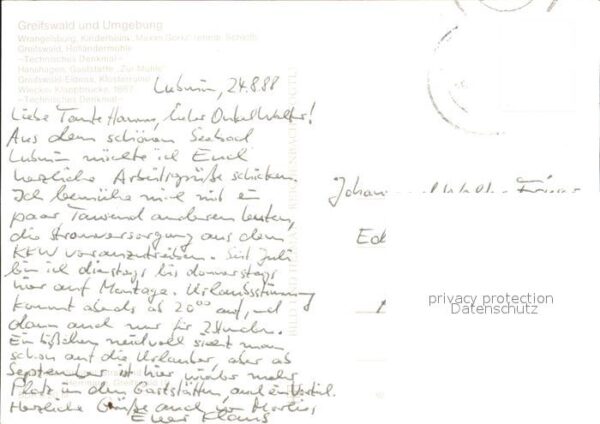 Greifswald und Umgebung
Wrangelsburg, Kinderheim "Maxim Gorki" (ehem. Schloß)
Greifswald, Holländermühle
–Technisches Denkmal–
Hanshagen, Gaststätte "Zur Mühle"
Greifswald-Eldena, Klosterruine
Wieck, Klappbrücke, 1887
–Technisches Denkmal–
Lubmin, 24.8.88
Liebe Tante Hanne, lieber Onkel Walter!
Aus dem schönen Seebad
Lubmin möchte ich Euch
herzliche Arbeitsgrüße schicken.
Ich bemühe mich mit ein
paar Tausend anderen Leuten,
die Stromversorgung aus dem
KKW voranzutreiben. Seit Juli
bin ich dienstags bis donnerstags
hier auf Montage. Urlaubsstimmung
kommt abends ab 20⁰⁰ auf, und
dann auch nur für 2 Stunden.
Ein bißchen neidvoll sieht man
schon auf die Urlauber, aber ab
September ist hier wieder mehr
Platz in den Gaststätten, auch ein Vorteil.
Herzliche Grüße auch von
Euer Klaus
privacy protection
Datenschutz